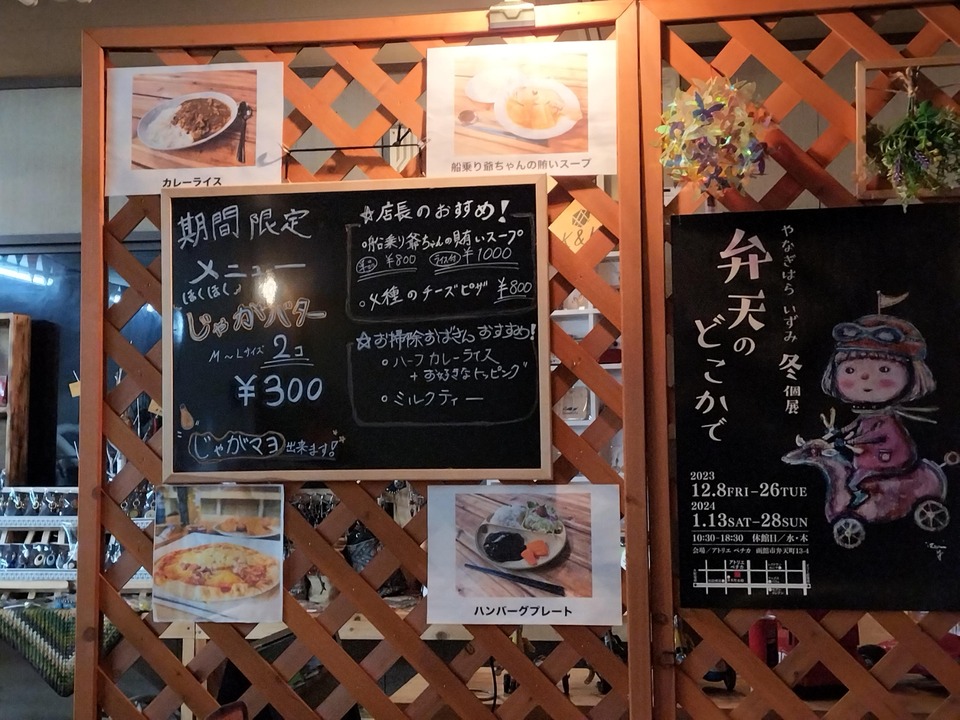 カレーライス
船乗り爺ちゃんの賄いスープ
期間限定
メニュー
ほくほく♪
じゃがバター
M〜Lサイズ 2コ
¥300
じゃがマヨ 出来ます!
☆店長のおすすめ!
・船乗り爺ちゃんの賄いスープ
¥800 ライス付 ¥1000
・4種のチーズピザ ¥800
☆お掃除おばさんおすすめ!
・ハーフカレーライス
+お好きなトッピング
・ミルクティー
K&I
ハンバーグプレート
やなぎはら いずみ 冬個展
弁天の
どこかで
2023
12.8FRI-26TUE
2024
1.13SAT-28SUN
10:30-18:30 休館日/水・木
会場/アトリエ ペチカ 函館市弁天町13-4
アトリエ
ペチカ